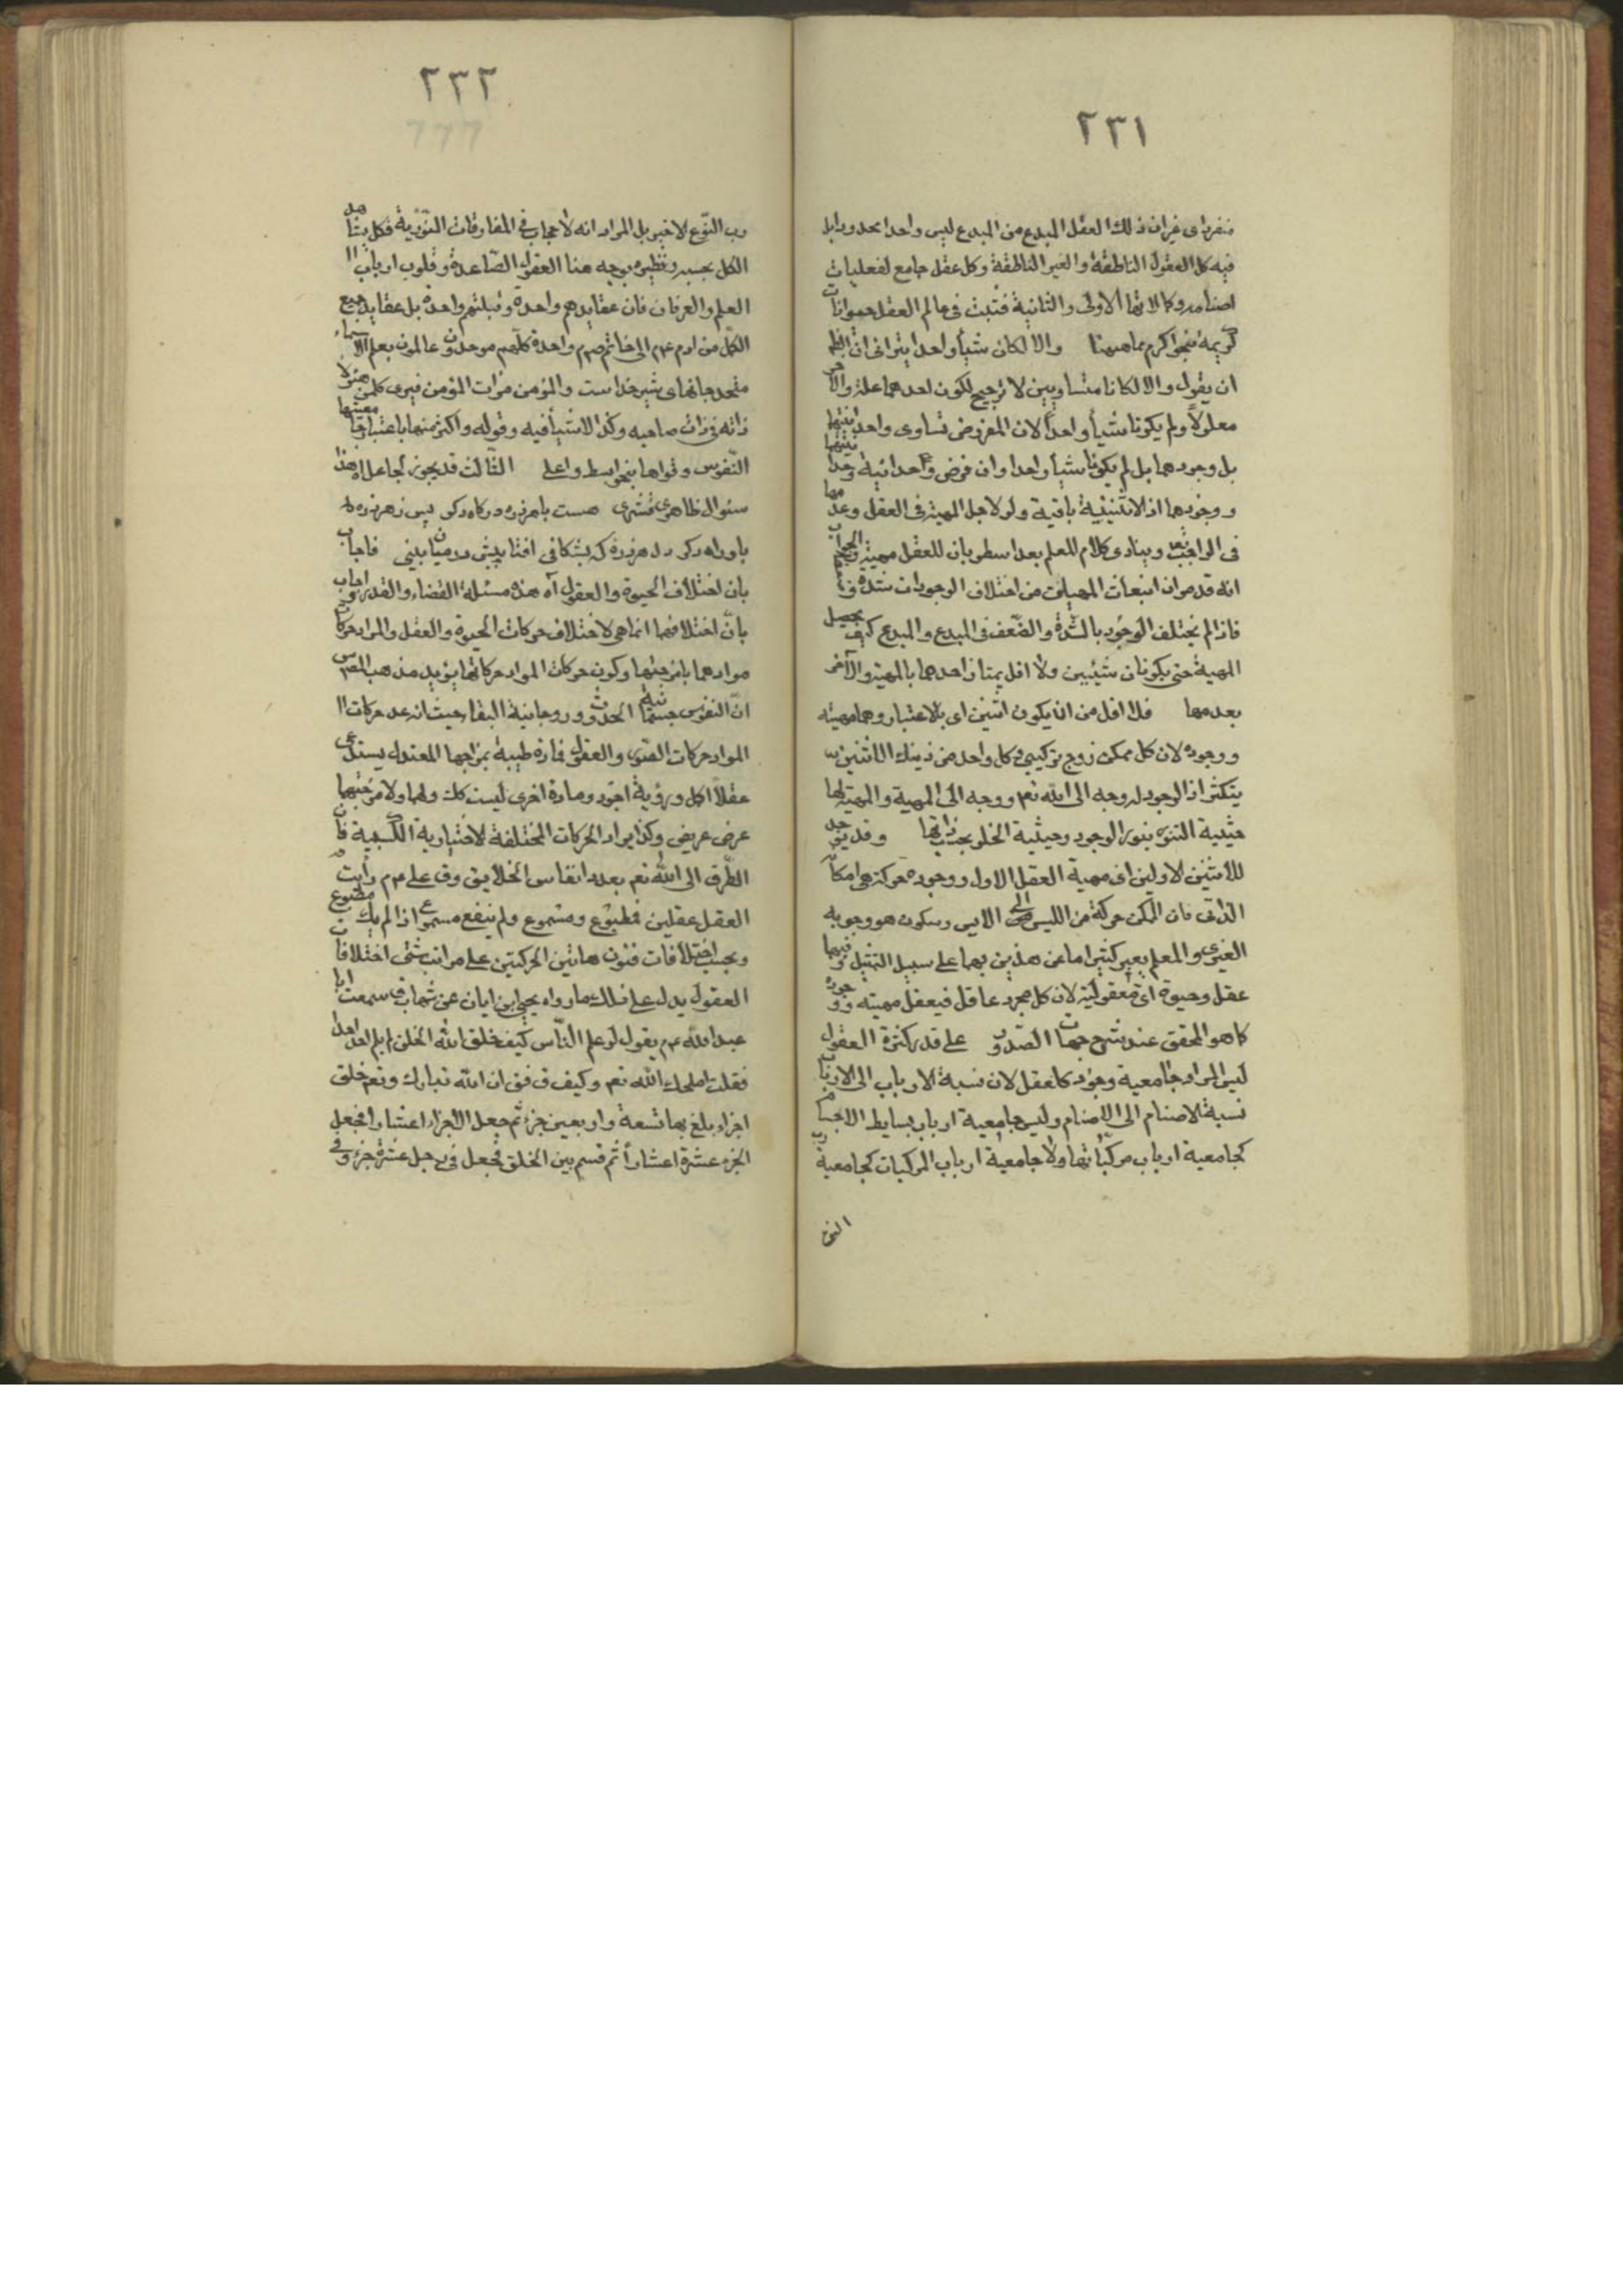 ٢٣١
منفرداى غيران ذلك العقل المبدع من المبدع ليس واحدا بحدود بل
فيه كل العقول الناطقة والغير الناطقة وكل عقل جامع لفعليات
اصنامه وكمالاتها الاولى والثانية فثبت فى عالم العقل حيوانات
كريمة بنحو اكرم مما هيهنا والا لكان شيأ واحدا يترائى ان
ان يقول والا لكانا متساويين لا ترجيح لكون احدهما علة والاخر
معلولاً ولم يكونا شيأ واحداً لان المفروض تساوى
بل وجودهما بل لم يكونا شيأ واحدا وان فرض
ووجودهما اذ الاثنينية باقية ولو لاجل المهية فى العقل وعدمها
فى الواجب تعم وينادى كلام المعلم بعد اسطر بان للعقل مهية
انه قد مر ان انبعاث المهيات من اختلاف الوجودات شدة
فاذا لم يختلف الوجود بالشدة والضعف فى المبدع والمبدع كيف يحصل
المهية حتى يكونان شيئين ولا اقل يمتاز احدهما بالمهية والآخر
بعدمها فلا اقل من ان يكون اثنين اى بالاعتبار وهما مهيته
ووجوده لان كل ممكن زوج تركيبى وكل واحد من ذينك الاثنين
يتكثر اذ الوجود له وجه الى الله تعم ووجه الى المهية والمهية لها
حيثية التنور بنور الوجود وحيثية الخلو بحد ذاتها وقد يوجد
للاثنين الاولين اى مهية العقل الاول ووجوده حركة هى امكانه
الذاتى فان الممكن حركة من الليس الى الايس وسكون هو وجوبه
الغيرى والمعلم يعبر كثيرا ما عن هذين بهما على سبيل التمثيل وفيهما
عقل وحيوة اى معقولية لان كل مجرد عاقل فيعقل مهيته ووجوده
كما هو المحقق عند شرح جهات الصدور على قدر كثرة العقول
ليس المراد جامعية وجود كل عقل لان نسبة الارباب الى الارباب
نسبة الاصنام الى الاصنام وليس جامعية ارباب بسايط الاجسام
كجامعية ارباب مركباتها ولا جامعية ارباب المركبات كجامعية رب
النوع
٢٣٢
رب النوع الاخير بل المراد انه لا حجاب فى المفارقات النورية فكل يشاهد
الكل بحسبه ونظيره بوجه هنا العقول الصاعدة وقلوب ارباب
العلم والعرفان فان عقايدهم واحدة وقبلتهم واحدة بل عقايد جميع
الكل من ادم عم الى خاتم صم واحدة كلهم موحدون عالمون بعلم الاسماء
متحد جانهاى شيرخداست والمؤمن مرات المؤمن فيرى كل من هؤلا
ذاته فى ذات صاحبه وكذا الاشياء فيه وقوله واكثر منها باعتبار
النفوس وقواها بنحو ابسط واعلى الثالث قد يجوز
سئوال ظاهرى قشرى هست باهر ذره دركاه دكر پس ز هر ذره
باو راه دكر دل هر ذره كه بشكافى افتابيش در ميان بينى فاجاب
بان اختلاف الحيوة والعقول آه هذه مسئلة القضاء والقدر
بان اختلافها انما هى لاختلاف حركات الحيوة والعقل والمراد حركات
موادهما بامزجتها وكون حركات المواد حركاتها يؤيد مذهب المص
ان النفوس جسمانية الحدوث وروحانية البقا حيث انه عد حركات
المواد حركات القوى والعقول فمادة طيبة بمزاجها المعتدل يستدعى
عقلا اكمل ورؤية اجود ومادة اخرى ليست كك ولهما ولامزجتهما
عرض عريض وكذا يراد الحركات المختلفة الاختيارية الكسبية فان
الطرق الى الله تعم بعدد انفاس الخلايق وق على عم رايت
العقل عقلين فمطبوع ومسموع ولم ينفع مسموع اذا لم يك مطبوع
وبحسب اختلافات فنون هاتين الحركتين على مراتب شتى اختلافات
العقول يدل على ذلك ما رواه يحيى ابن ابان عن شهاب ق سمعت ابا
عبد الله عم يقول لو علم الناس كيف خلق الله الخلق لم يلم احد احدا
فقلت اصلحك الله تعم وكيف ق فق ان الله تبارك وتعم خلق
اجزاء بلغ بها تسعة واربعين جزء ثم جعل الاجزاء اعشارا فجعل
الجزء عشرة اعشاراً ثم قسم بين الخلق فجعل فى رجل عشر جزء وفى